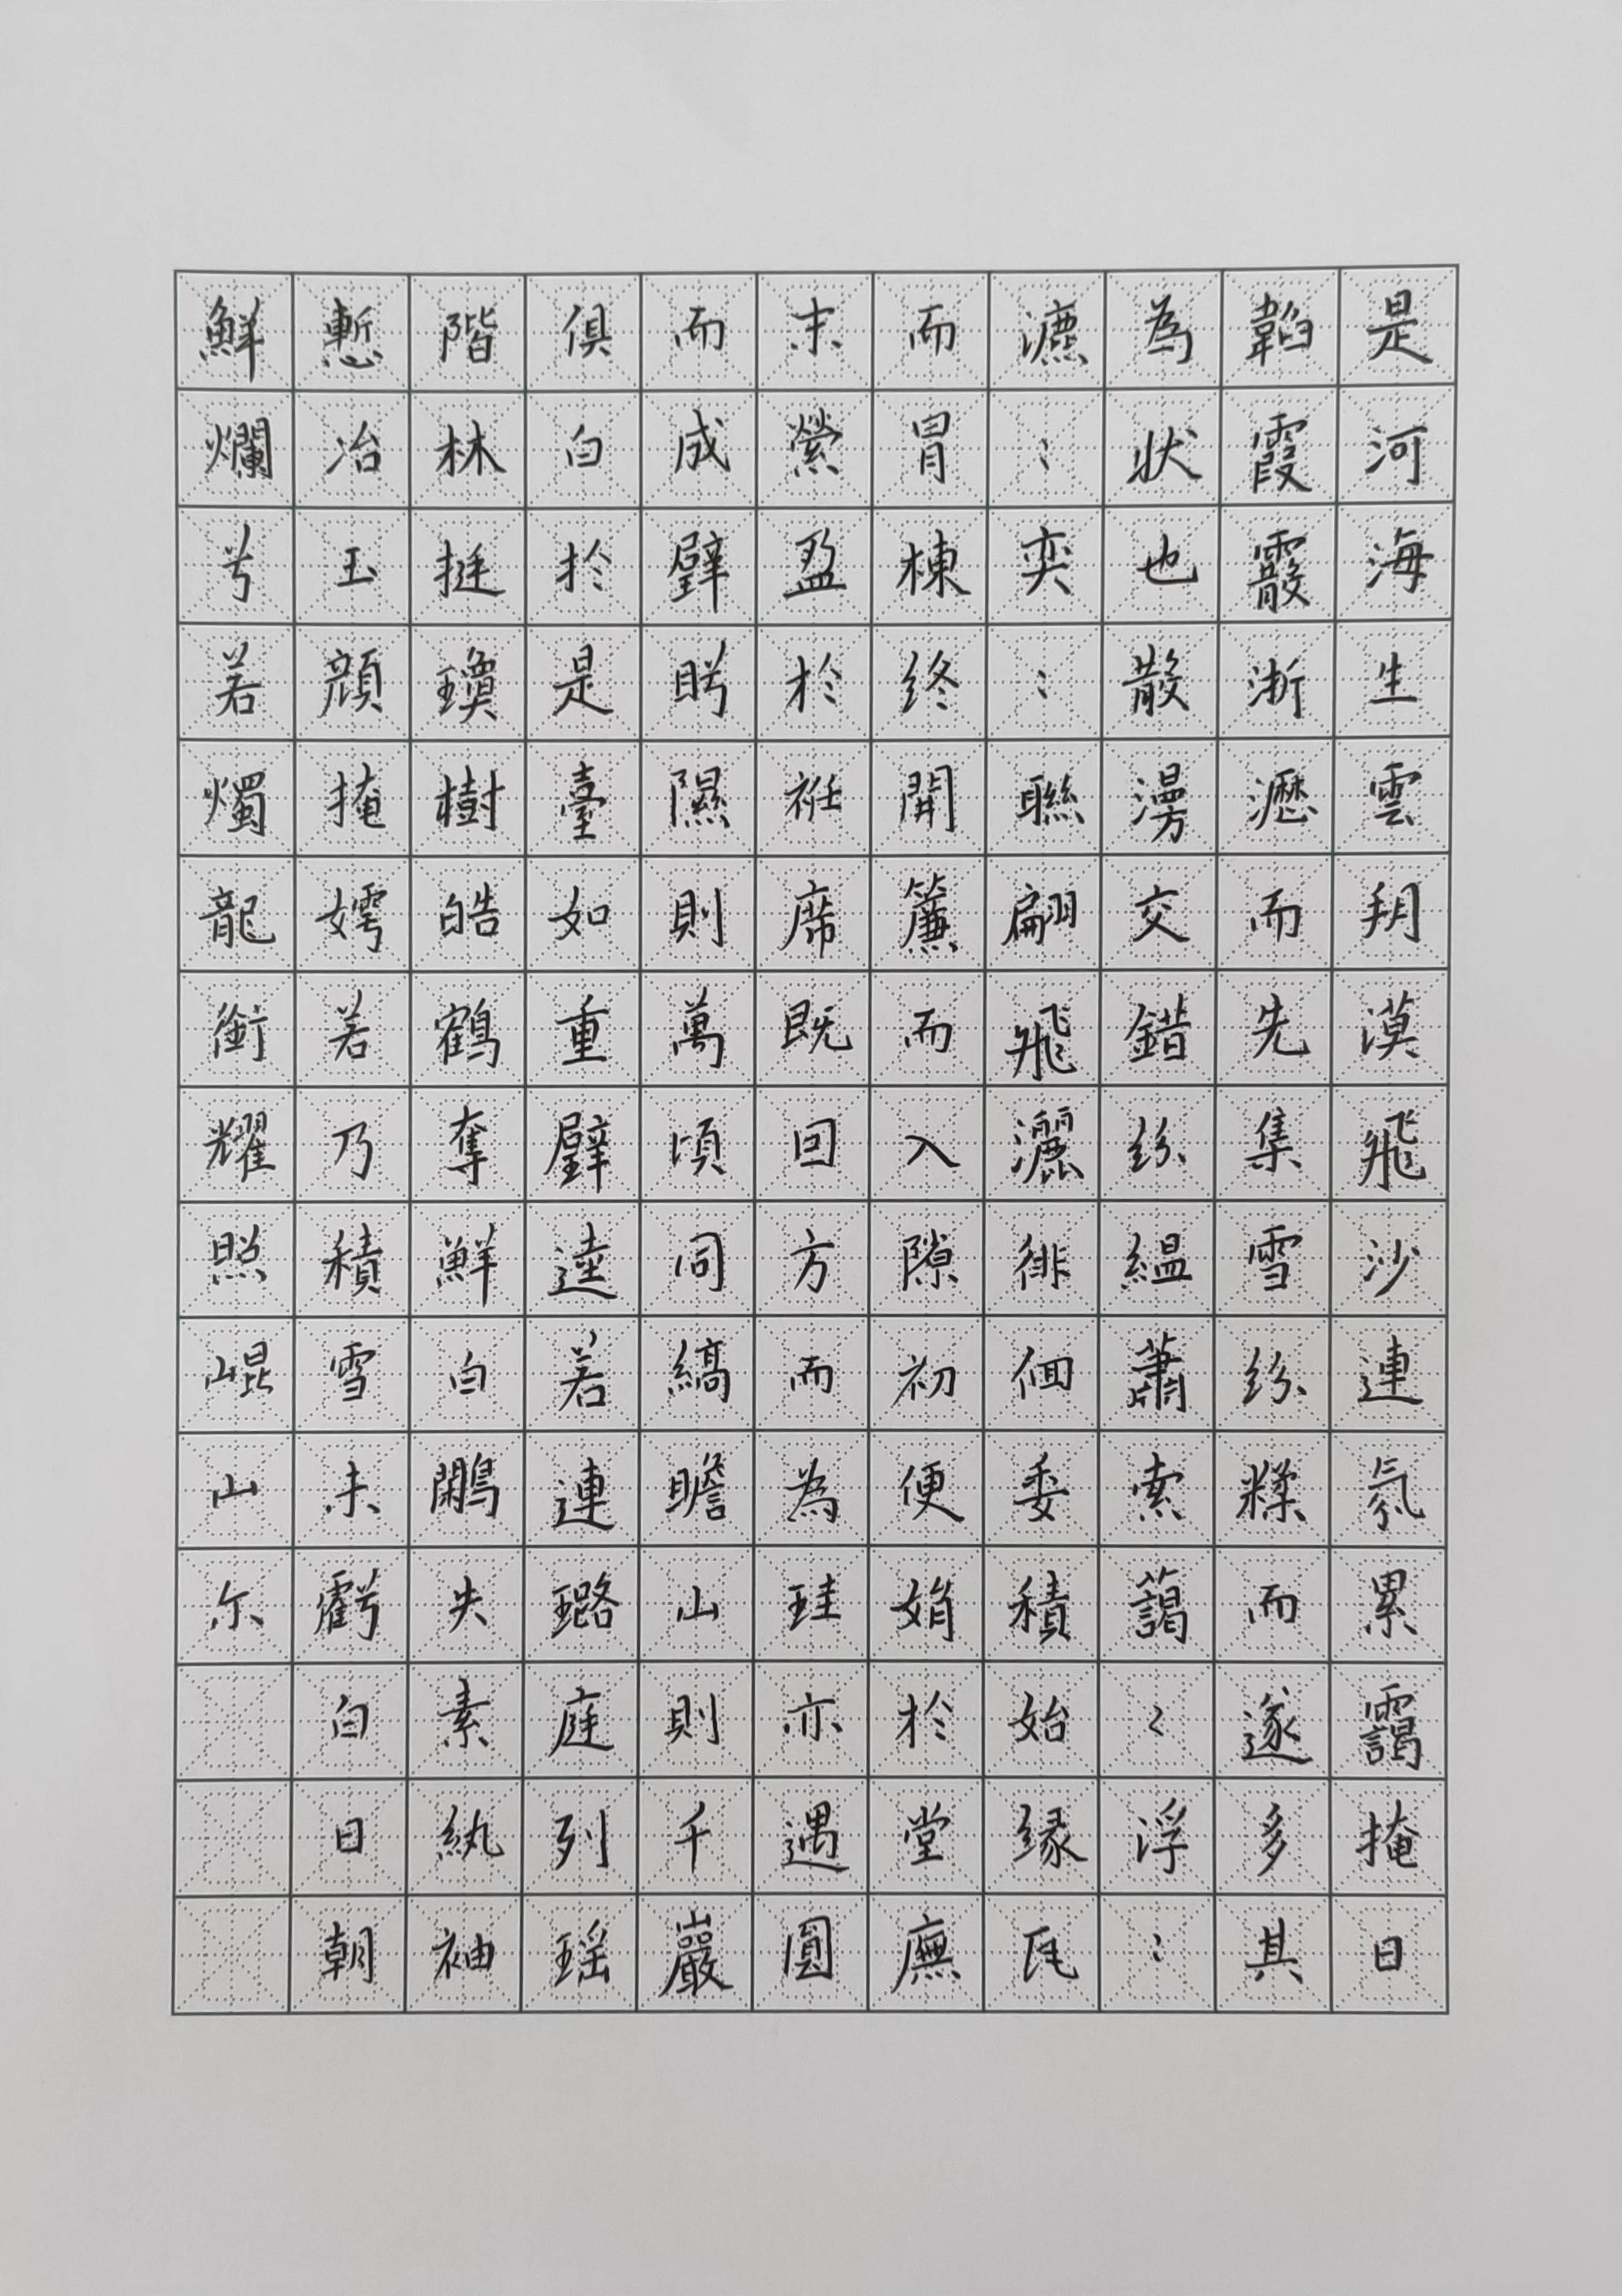 是河海生雲朔漠飛沙連氛累靄掩日
韜霞霰淅瀝而先集雪紛糅而遂多其
為狀也散漫交錯紛緼蕭索藹〻浮〻
瀌〻奕〻聯翩飛灑徘徊委積始緣瓦
而冒棟終開簾而入隙初便娟於堂廡
末縈盈於袵席既因方而為珪亦遇圓
而成璧眄隰則萬頃同縞瞻山則千巖
俱白於是臺如重璧逵若連璐庭列瑶
階林挺瓊樹皓鶴奪鮮白鷴失素紈袖
慙冶玉顔掩嫮若乃積雪未虧白日朝
鮮爛兮若燭龍銜耀照崐山尔